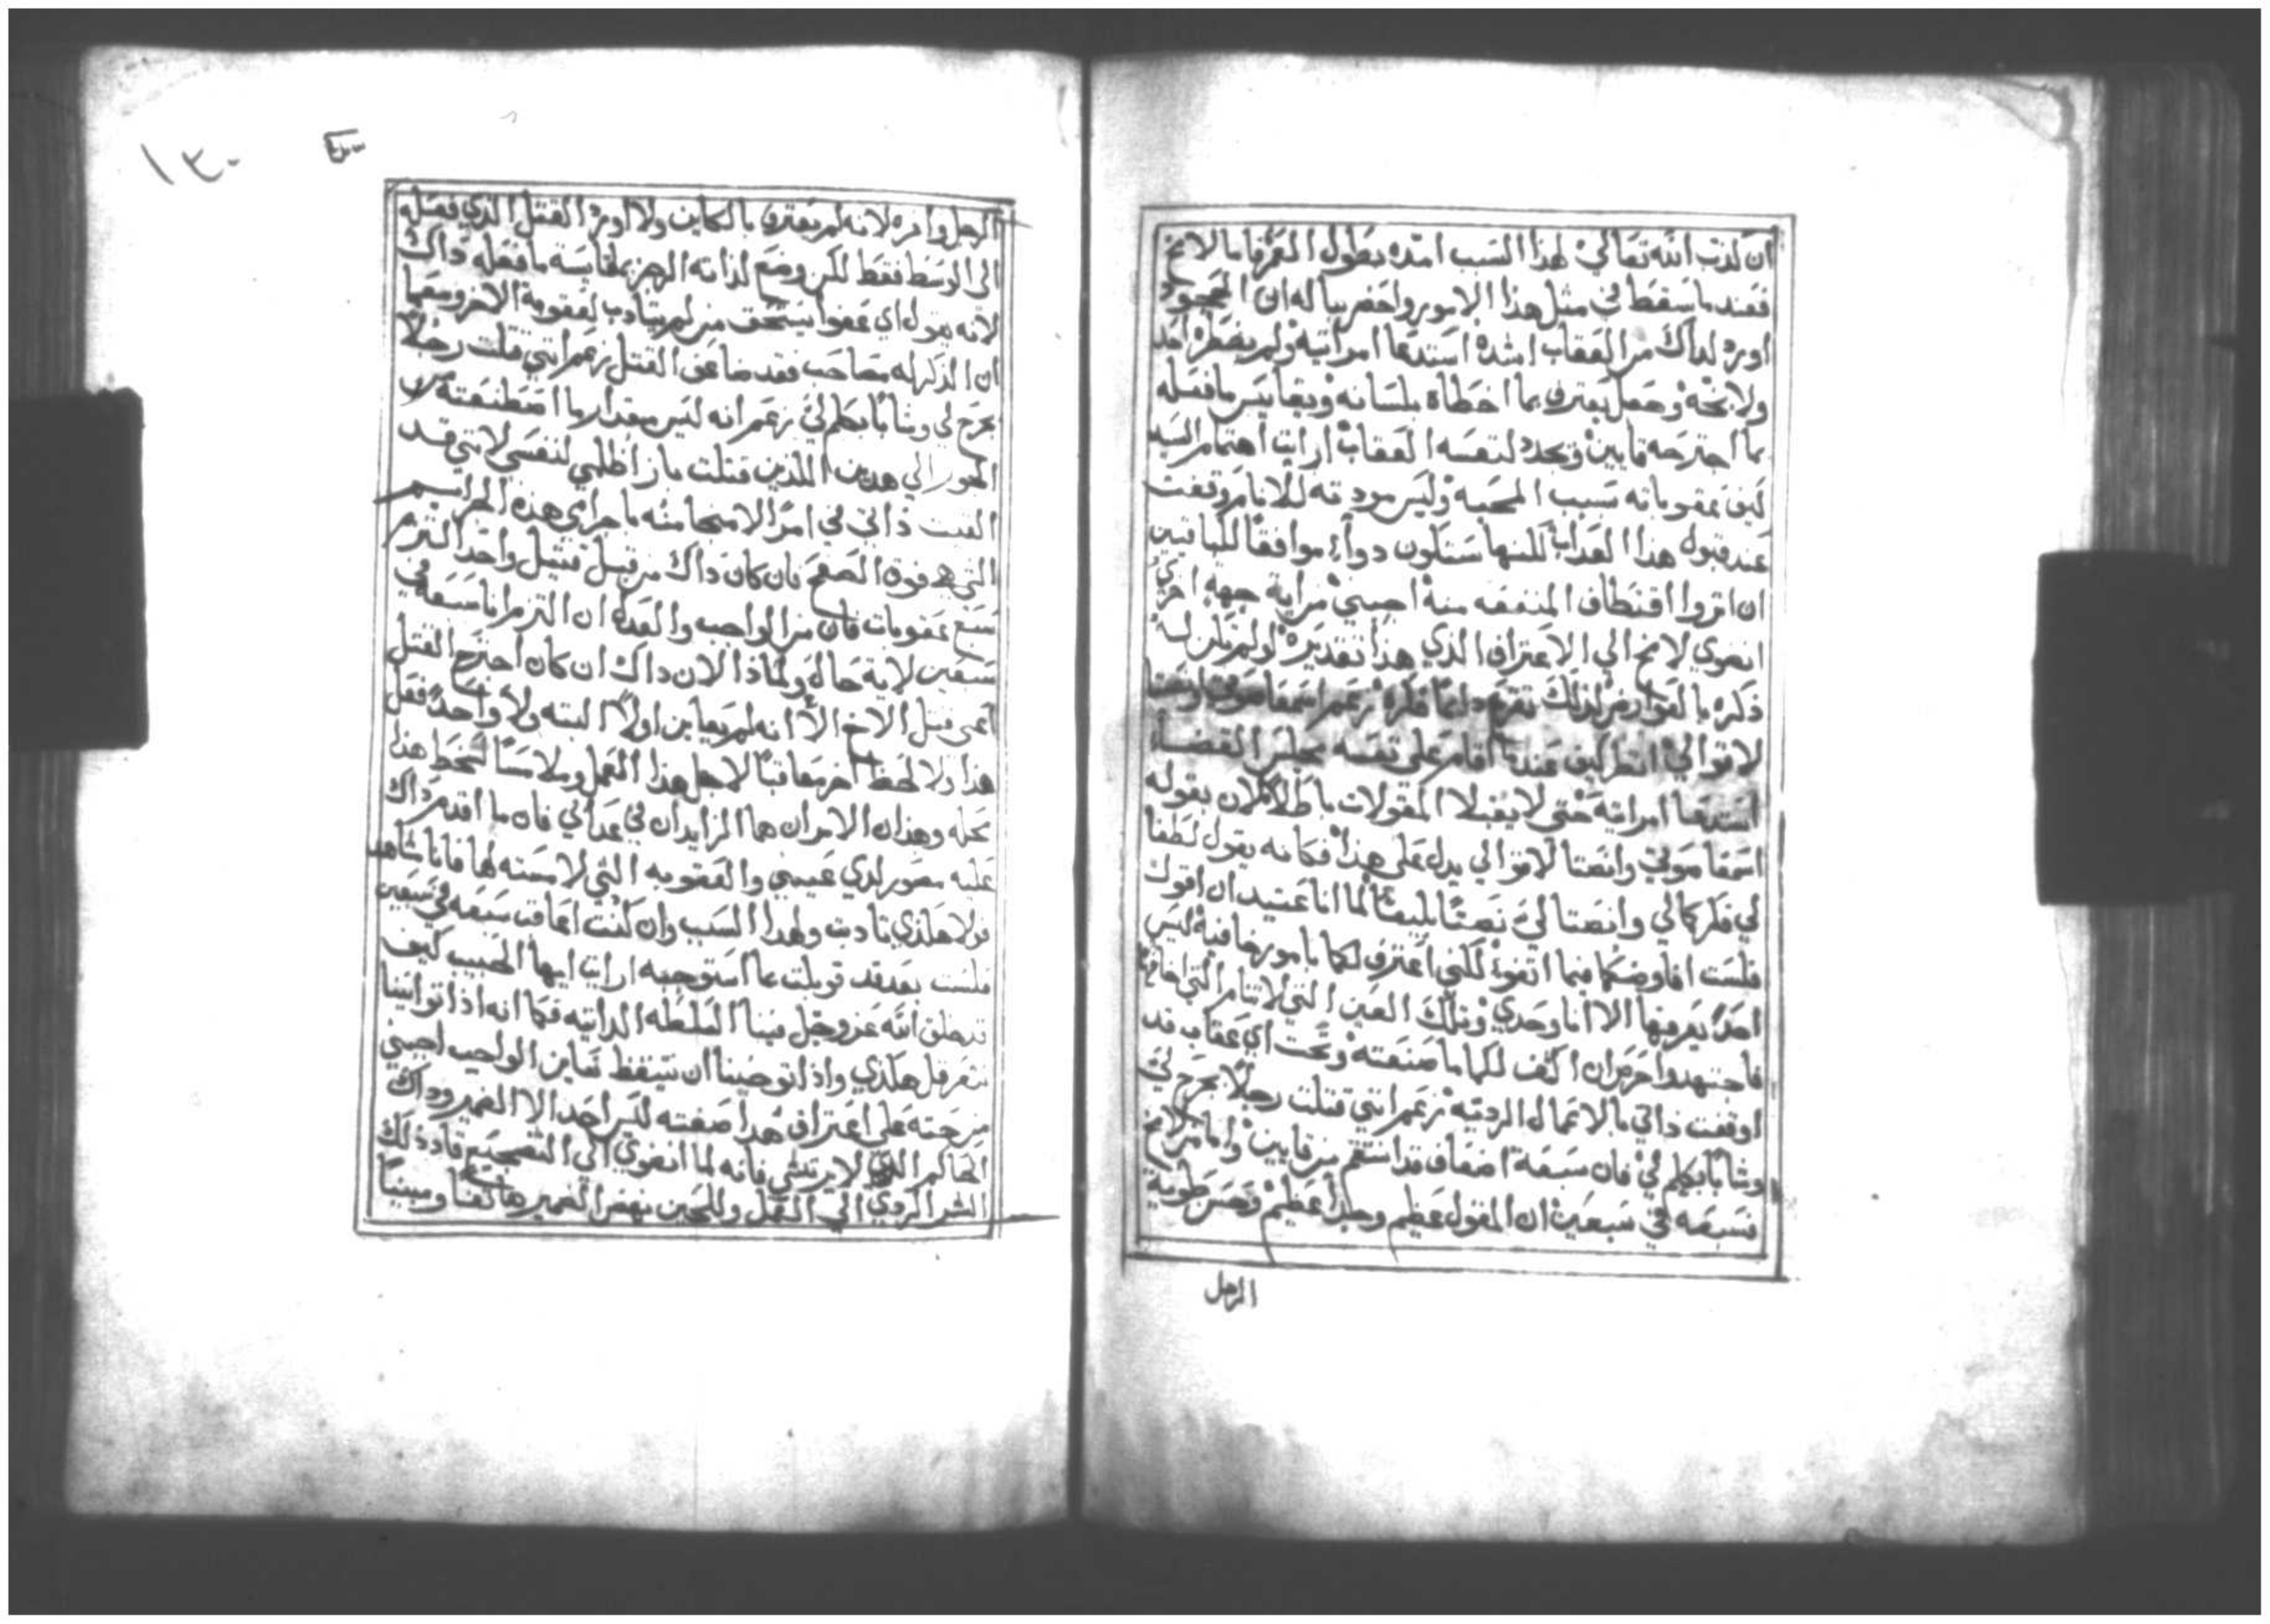 ان لذت الله تعالي لهذا السبب امده بطول العمر فاما لامخ
فعند ما سقط في مثل هذا الامور واحضر بباله ان الجحود
اورد لداك من العقاب اشده استدعا امراتيه ولم يضطره احد
ولا بخه وجعل يعترف بما اخطاه بلسانه ويقايس ما فعله
بما اجترحه قايين ويحدد لنفسه العقاب ارايت اهتمام السيد
كيف عقوباته بسبب المحبه وليس مودته للانام وقفت
عند قبول هذا العداب لكنها ستكون دواء موافقا للباقين
ان اثروا اقتطاف المنفعه منه اجبني من اية جهة اخري
انضوي لامخ الي الاعتراف الذي هذا تقديره لو لم تكن له
ذكره بالعوارض لذلك تقرع دايما فكره زعم اسمعا صوتي وانصتا
لاقوالي انظر كيف عندما اقام على نفسه مجلس القضاء
استدعا امراتيه حتي لا يقبلا المقولات باطلا لان بقوله
اسمعا صوتي وانصتا لاقوالي يدل على هذا فكانه يقول لطفا
لي فكركما لي وانصتا لي نصتا بليغا لما انا عتيد ان اقول
فلست افاوضكما فيما اتفق لكني اعترف لكما بامور خافيه ليس
احدا يعرفها الا انا وحدي وتلك العين التي لا تنام التي
فاجتهدوا احرص ان اكشف لكما ما صنعته وتحت اي عقاب قد
اوقفت ذاتي بالاعمال الرديه زعم انني قتلت رجلا بجرح لي
وشابا بكلم لي فان سبعة اضعاف قد انتقم من قايين واما من لامخ
فسبعه في سبعين ان المقول عظيم وجليل عظيم وحسن طوية
الرجل
١٣٠
الرجل وافره لانه لم يعترف بالكاين ولا اورد القتل الذي فعله
الى الوسط فقط لكن وضع لذاته الرجز بمقايسة ما فعله ذاك
لانه يقول اي عفوا يستحق من لم يتادب لعقوبة الاخر ومعما
ان الذكر له مصاحب فقد ضاعف القتل زعم انني قتلت رجلا
بجرح لي وشابا بكلم لي زعم انه ليس مقدار ما اصطنعته من
الجور الي هدين اللذين قتلت مازا ظلمي لنفسي لانني قد
القيت ذاتي في امر لا منجا منه باجراي هذه الجرايم
التي هي فوق الصفح فان كان ذاك من قبل قتيل واحد التزم
سبع عقوبات فان من الواجب والعدل ان التزم انا سبعة في
سبعين لاية حال ولماذا لان داك ان كان اجترح القتل
اعني قتل الاخ الا انه لم يعاين اولا البته ولا واحدا فعل
هذا ولا لحظ اخر معاقبا لاجل هذا العمل وملامسا لسخط هذا
محله وهذان الامران هما الزايدان في عدابي فان ما اقدم داك
عليه مصور لدي عيني والعقوبه التي لامسته لها فانا شاهد
فولا هكذي تادبت ولهدا السبب وان كنت اعاقب سبعه في سبعين
فلست بعد قد قوبلت عما استوجبه ارايت ايها الحبيب كيف
قد خلق الله عز وجل فينا السلطه الداتيه فكما انه اذا توانينا
نتعرقل هكذي واذا توخينا ان نتيقظ نعاين الواجب اجبني
من حته على اعتراف هدا صفته ليس احد الا الضمير وداك
الحاكم الذي لا يرتشي فانه لما انضوي الي التضجيع قاد ذلك
الشر الردي الي العمل وللحين نهض الضمير هاتفا ومبينا